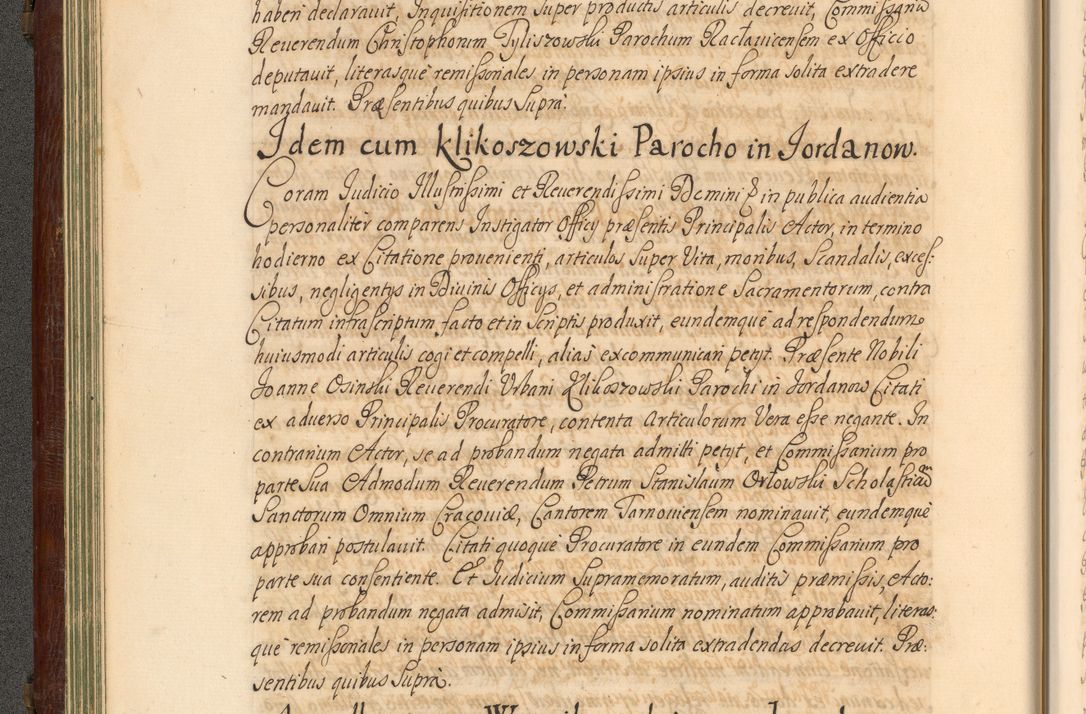 haberi declarauit, Inquisitionem super productis articulis decreuit, Commissariū
Reuerendum Christophorum Tyliszowski Parochum Racłauicensem ex Officio
deputauit, literasquè remissoriales in personam ipsius in forma solita extradere
mandauit. Præsentibus quibus supra.
Idem cum Klikoszowski Parocho in Jordanow.
Coram Iudicio Illustrissimi et Reuerendissimi Domini & in publica audientia
personalitèr comparens Instigator Officij præsentis Principalis Actor, in termino
hodierno ex Citatione prouenienti, articulos super Vita, moribus, Scandalis, exces-
sibus, negligentijs in Diuinis Officijs, et administratione Sacramentorum, contra
Citatum infrascriptum facto et in scriptis produxit, eundemquè ad respondendum
huiusmodi articulis cogi et compelli, alias excommunicari petyt. Præsente Nobili
Joanne Osinski Reuerendi Urbani Klikoszowski Parochi in Jordanow Citati
ex aduerso Principalis Procuratore, contenta articulorum Vera esse negante. In
contrarium Actor, se ad probandum negata admitti petyt, et Commissarium pro
parte sua Admodum Reuerendum Petrum Stanislaum Orłowski Scholasticum
Sanctorum Omnium Cracouiæ, Cantorem Tarnouiensem nominauit, eundemquè
approbari postulauit. Citati quoquè Procuratore in eundem Commissarium pro
parte sua consentiente. Et Iudicium supramemoratum, auditis præmissis, Acto-
rem ad probandum negata admisit, Commissarium nominatum approbauit, literas-
què remissoriales in personam ipsius in forma solita extradendas decreuit. Præ-
sentibus quibus supra.